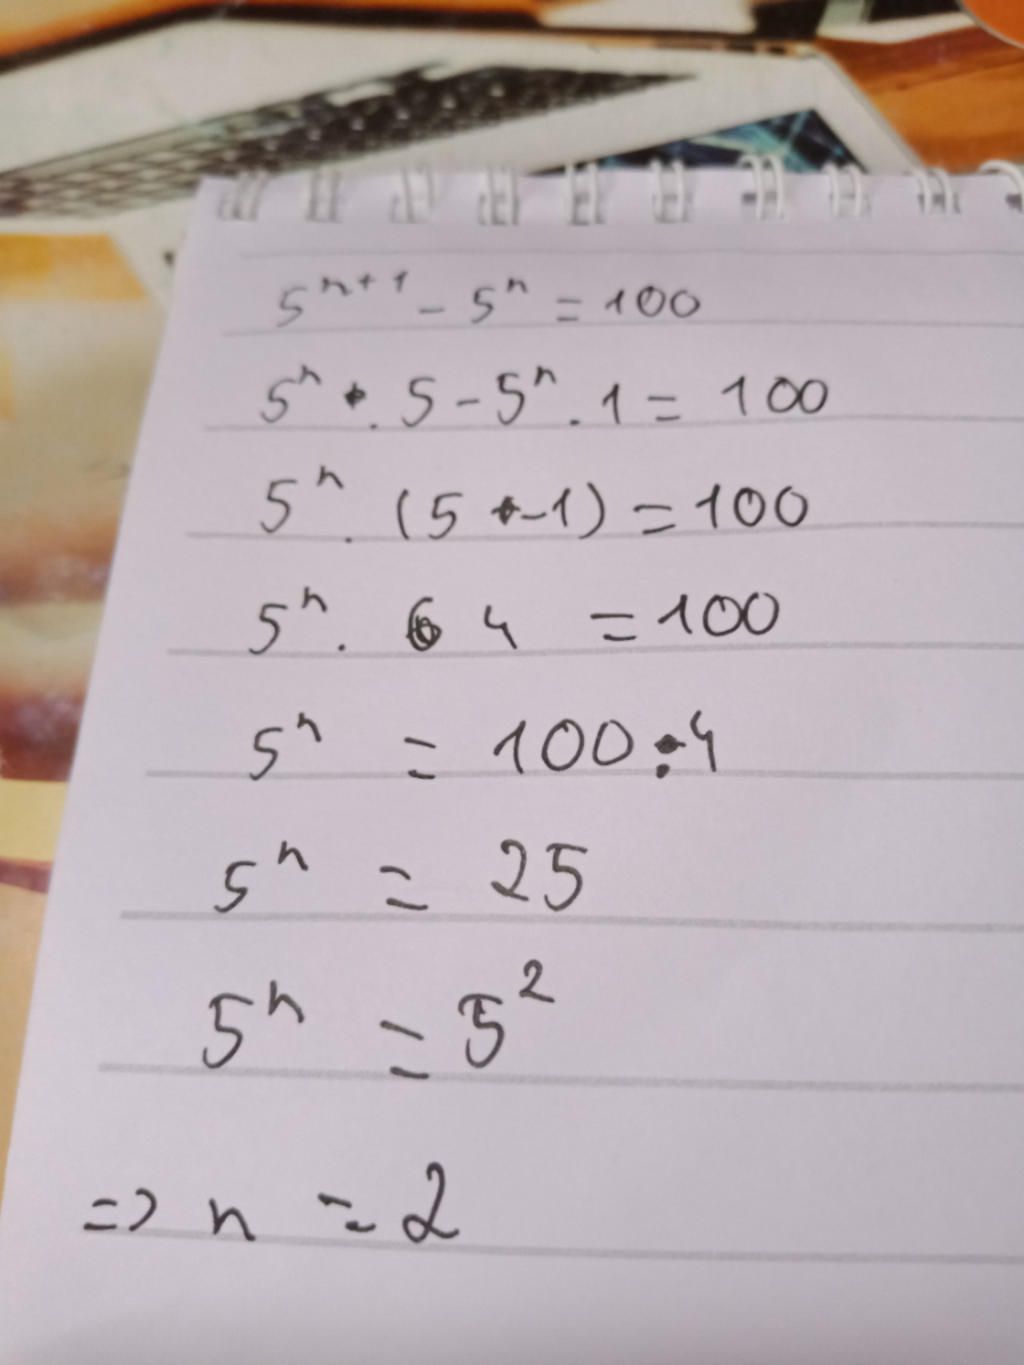 5ⁿ⁺¹ - 5ⁿ = 100
5ⁿ . 5 - 5ⁿ . 1 = 100
5ⁿ . (5 - 1) = 100
5ⁿ . 4 = 100
5ⁿ = 100 : 4
5ⁿ = 25
5ⁿ = 5²
=> n = 2